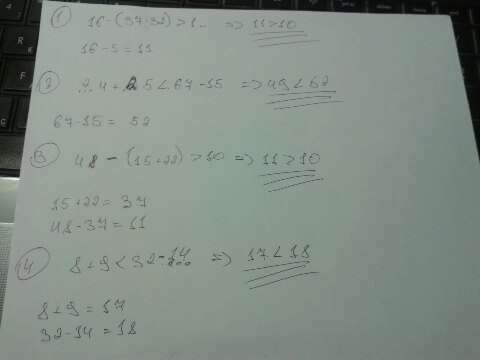 ① 16-(37-32)>1.. => 11>10
16-5=11
② 24+25<67-15 => 49<52
67-15=52
③ 48-(15+22)>10 => 11>10
15+22=37
48-37=11
④ 8+9<32-14 => 17<18
8+9=17
32-14=18